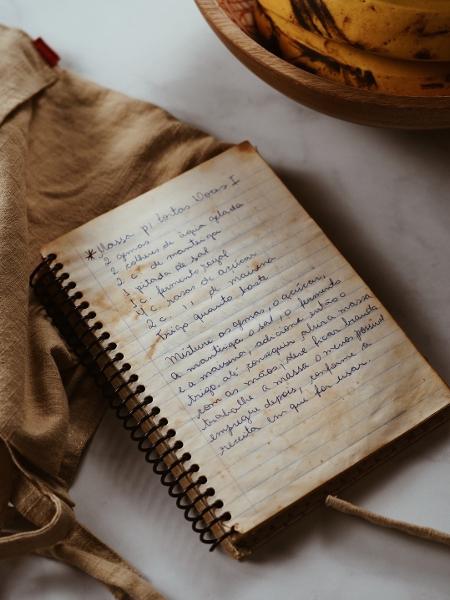 *Massa p/ tortas Doces I
2 gemas
2 colheres de água gelada
2 c. de manteiga
1 pitada de sal
1 c. fermento royal
c. rasas de açúcar
2 c. " de maisena
Trigo quanto baste
Misture as gemas, o açúcar,
a manteiga o sal, o fermento
e a maisena, adicione então o
trigo até conseguir puxar a massa
com as mãos, deve ficar branda
trabalhe a massa o menos possível
empregue depois, conforme a
receita em que for usar.